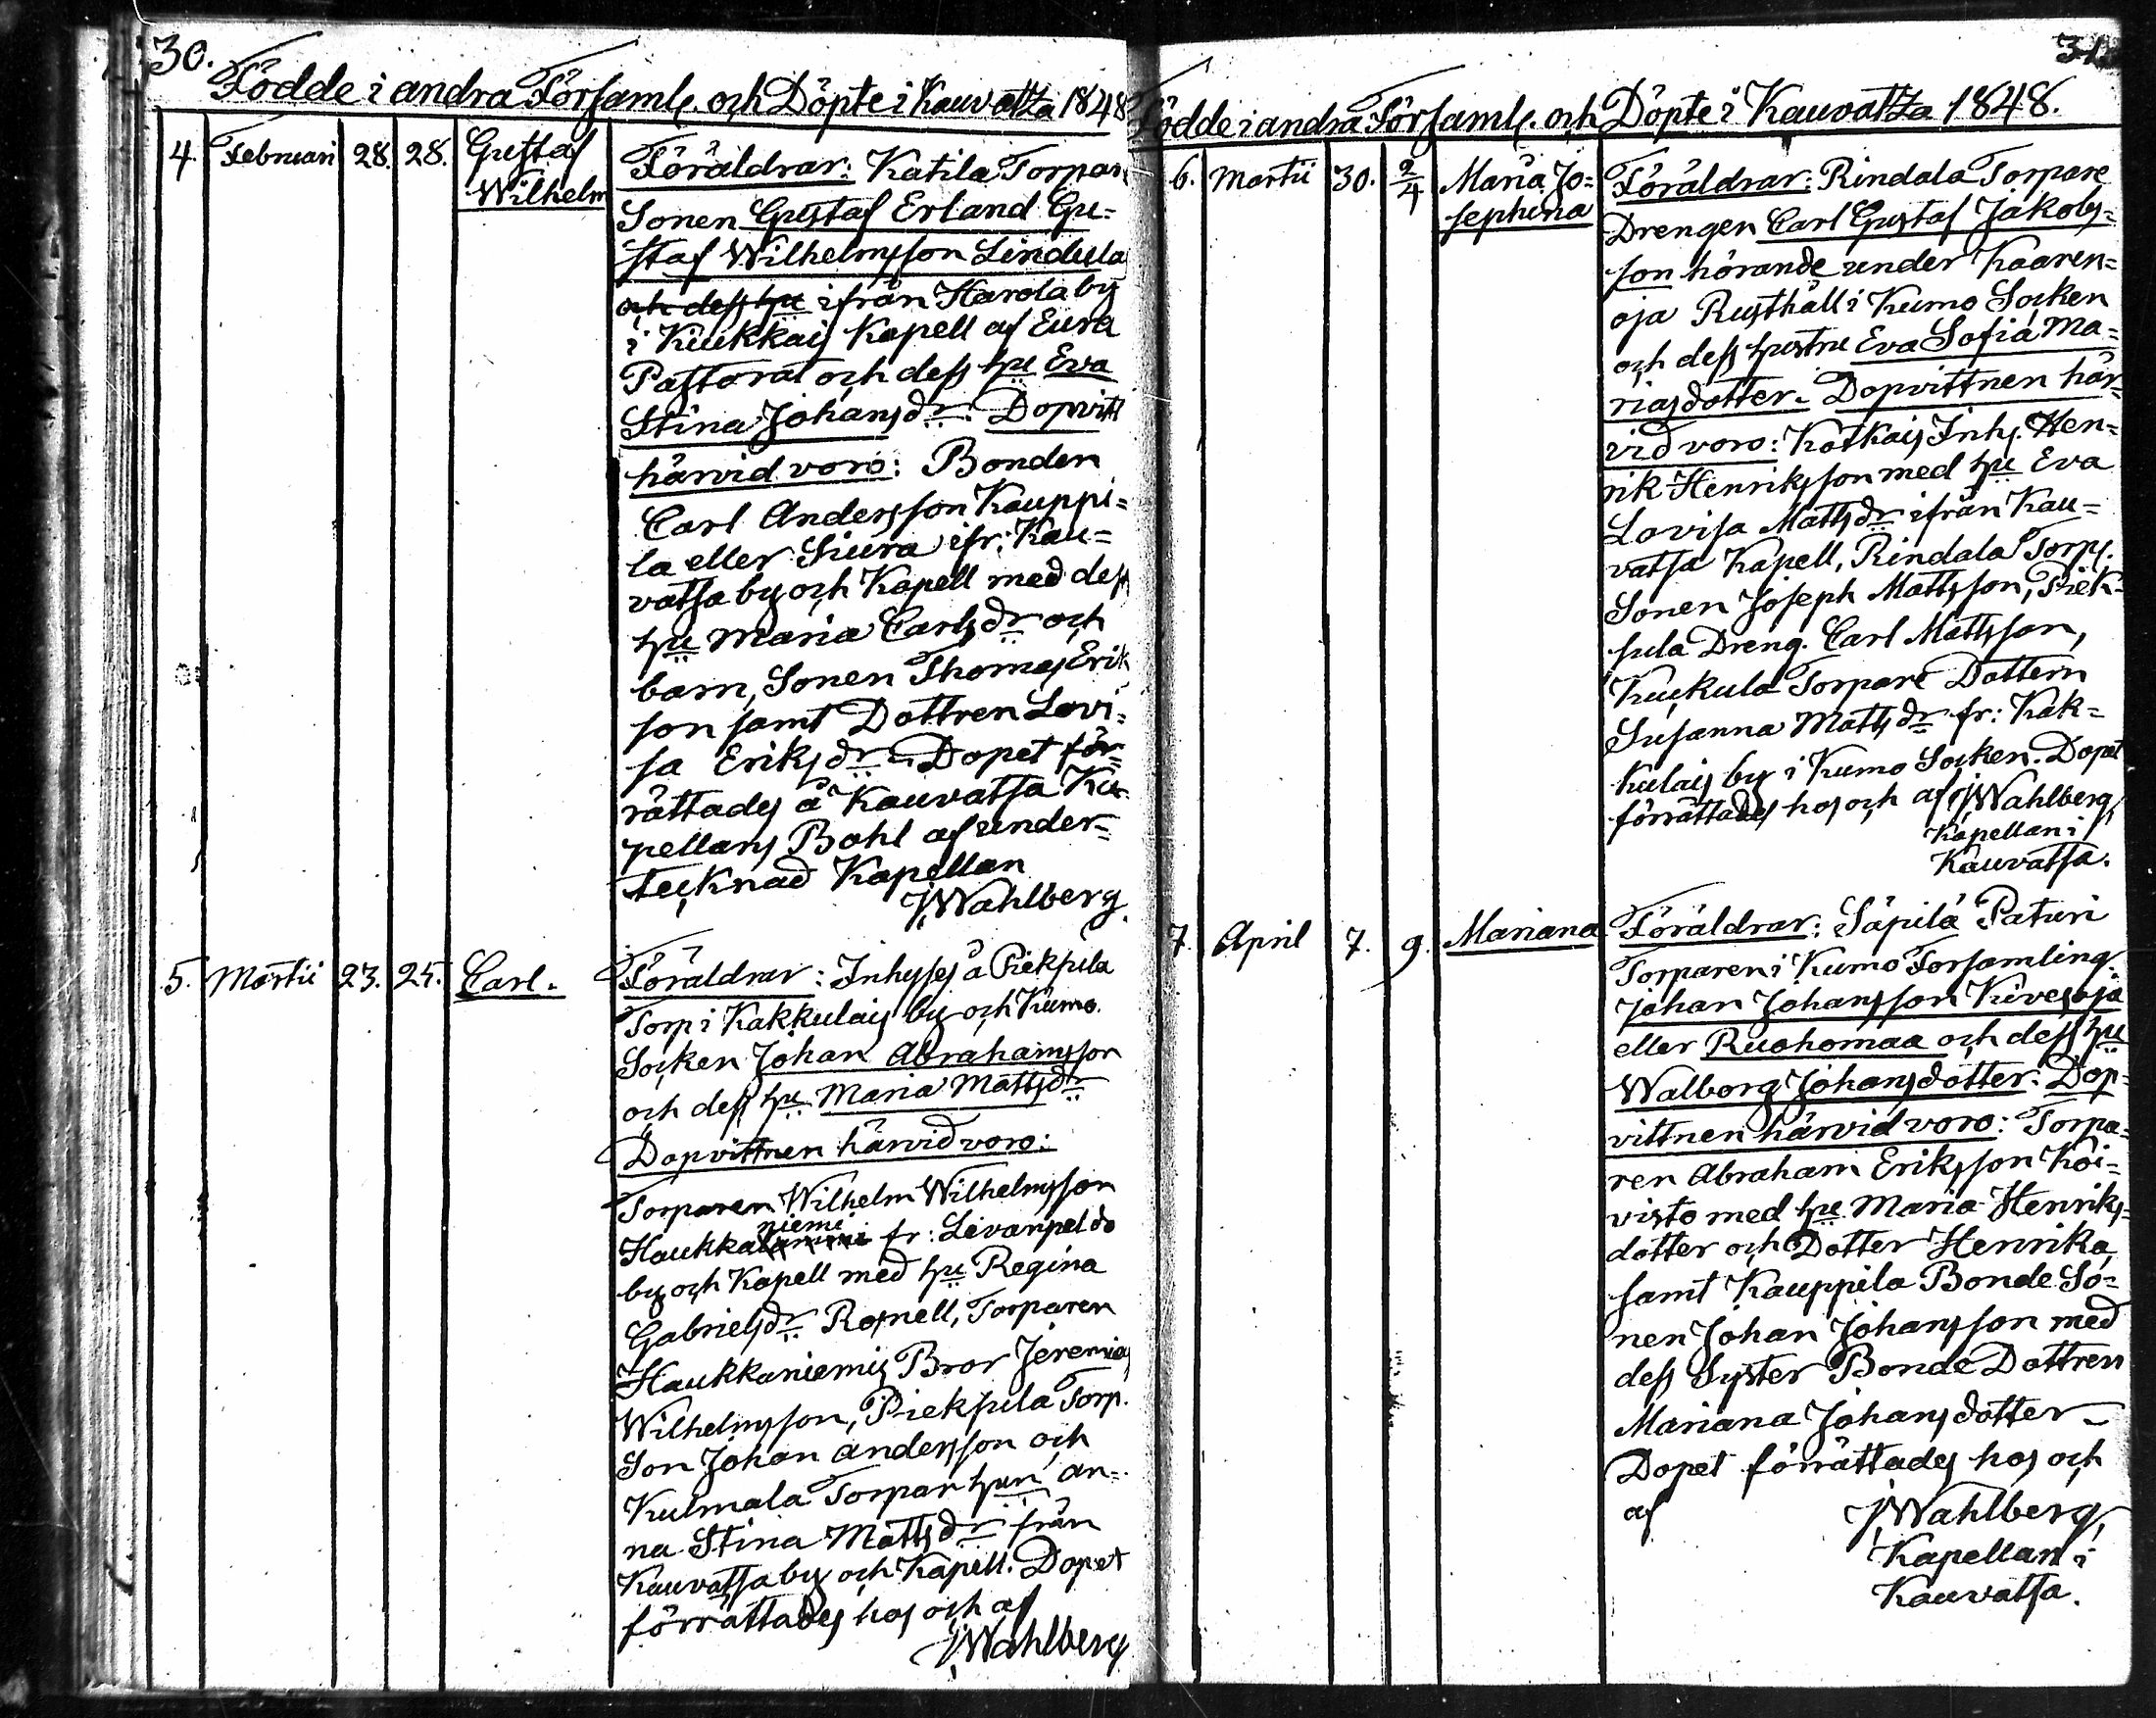 30.
Födde i andra Församl. och Döpte i Kauvatza 1848
4. Februari 28. 28. Gustaf
Wilhelm
Föräldrar: Katila Torpare
Sonen Gustaf Erland Gu=
staf Wilhelmsson Lindula
och dess hu ifrån Harola by
i Kiukkais Kapell af Eura
Pastorat och dess hu Eva
Stina Johansdr. Dopvitt
härvid voro: Bonden
Carl Andersson Kauppi=
la eller Siura ifr: Kau=
vatsa by och Kapell med dess
hu Maria Carlsdr och
barn, Sonen Thomas Erik
son samt Dottren Lovi=
sa Eriksdr. Dopet för=
rättades å Kauvatsa Ka
pellans Bohl af under=
tecknad Kapellan
JWahlberg.
5. Martii 23. 25. Carl.
Föräldrar: Inhyses å Pieksula
Torp i Kakkulais by och Kumo
Socken Johan Abrahamsson
och dess hu Maria Mattsdr
Dopvittnen härvid voro:
Torparen Wilhelm Wilhelmsson
niemi
Haukka fr: Levanpeldo
by och Kapell med hu Regina
Gabrielsdr Rosnell, Torparen
Haukkaniemis Bror Jeremias
Wilhelmsson, Pieksula Torp.
Son Johan Andersson och
Kulmala Torpar hun An=
na Stina Mattsdr ifrån
Kauvatsa by och Kapell. Dopet
förrättades hos och af
JWahlberg
31.
Födde i andra Församl. och Döpte i Kauvatza 1848.
6. Martii 30. 2/4 Maria Jo=
sephina
Föräldrar: Rindala Torpare
Drengen Carl Gustaf Jakobs=
son hörande under Kaaren=
oja Rusthåll i Kumo Socken
och dess hustru Eva Sofia Ma=
riasdotter. Dopvittnen här=
vid voro: Kotkais Inhs. Hen=
rik Henriksson med hu Eva
Lovisa Mattsdr ifrån Kau=
vatsa Kapell, Rindala Torps.
Sonen Joseph Mattsson, Piek=
sula Dreng. Carl Mattsson,
Kuckula Torpare Dottern
Susanna Mattsdr fr: Kak=
kulais by i Kumo Socken. Dopet
förrättades hos och af JWahlberg,
Kapellan i
Kauvatsa.
7. April 7. 9. Mariana
Föräldrar: Säpilä Paturi
Torparen i Kumo Församling.
Johan Johansson Kivesoja
eller Ruohomaa och dess hu
Walborg Johansdotter. Dop=
vittnen härvid voro: Torpa=
ren Abraham Eriksson Koi=
visto med hu Maria Henriks=
dotter och Dotter Henrika
samt Kauppila Bonde So=
nen Johan Johansson med
dess Syster Bonde Dottren
Mariana Johansdotter
Dopet förrättades hos och
af JWahlberg,
Kapellan i
Kauvatsa.